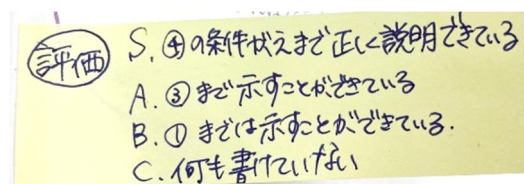 評価
S. ④の条件がえまで正しく説明できている
A. ③まで示すことができている
B. ①までは示すことができている.
C. 何も書けていない